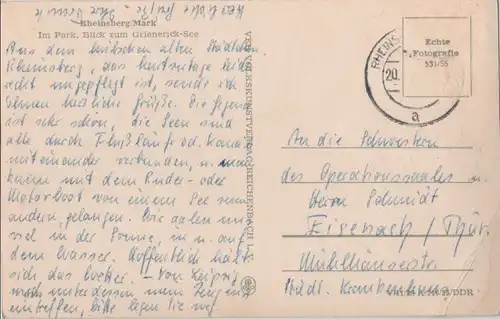 Herzliche Grüße - Ihre
Rheinsberg/Mark
Im Park, Blick zum Grienerick-See
Aus dem hübschen alten Städtchen
Rheinsberg, das heutzutage leider
acht ungepflegt ist, sende ich
Ihnen herzliche Grüße. Die Gegend
ist sehr schön, die Seen sind
alle durch Flußläufe od. Kanäle
miteinander verbunden, u. man
kann mit dem Ruder- oder
Motorboot von einem See zum
andern gelangen. Wir aalen uns
viel in der Sonne, in u. auf
dem Wasser. Hoffentlich hält
sich das Wetter. - Von Leipzig
wird unterdessen mein Zeugnis
eintreffen, bitte legen Sie es
VEB VOLKSKUNSTVERLAG REICHENBACH I. V.
RHEINS
20.
a
Echte
Fotografie
531/55
An die Schwestern
des Operationssaales u.
Herrn Schmidt
Eisenach / Thür.
Mühlhäuserstr.
Städt. Krankenhaus